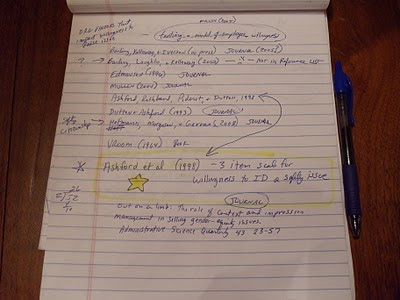 MULLEN (2005)
ORG FACTORS that
impact willingness to
raise issue
Testing a model of employee willingness
Barling, Kelloway, & Iverson (in press) JOURNAL (2003)
? → Barling, Loughlin, & Kelloway (2002) Not in Reference List
Edmondson (1996) JOURNAL
Mullen (2004) JOURNAL
Ashford, Rothbard, Piderit, & Dutton, 1998
Dutton & Ashford (1993) JOURNAL
Safety
citizenship
Hofmann, Morgeson, & Gerras, 2003) JOURNAL
Vroom (1964) Book
Ashford et al (1998) - 3 item scale for
willingness to ID a safety issue
JOURNAL
Out on a limb: The role of context and impression
management in selling gender-equity issues.
Administrative Science Quarterly 43 23-57